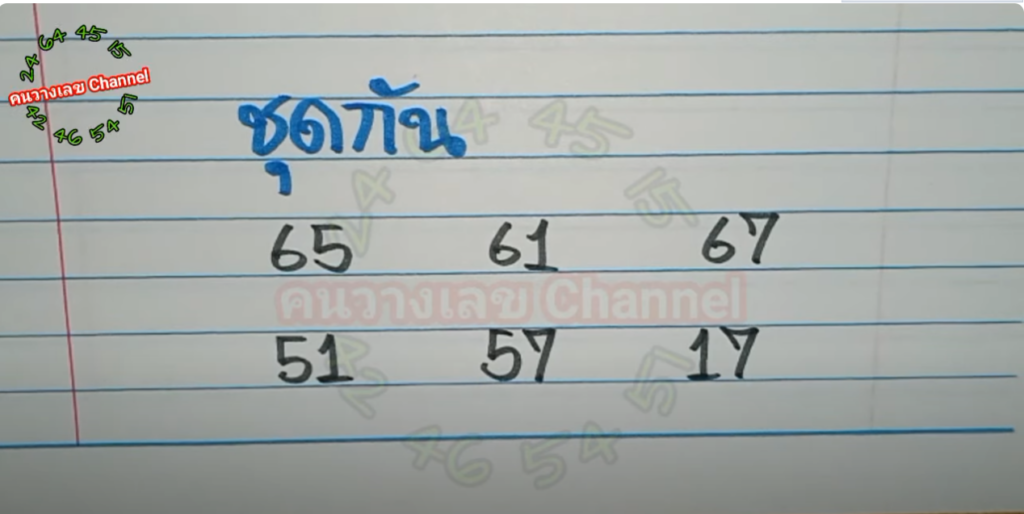 64 45 15
24
คนวางเลข Channel
42 46 54 51
ชุดกัน
64 45
24 15
65 61 67
คนวางเลข Channel
51 57 17
42 51
46 54